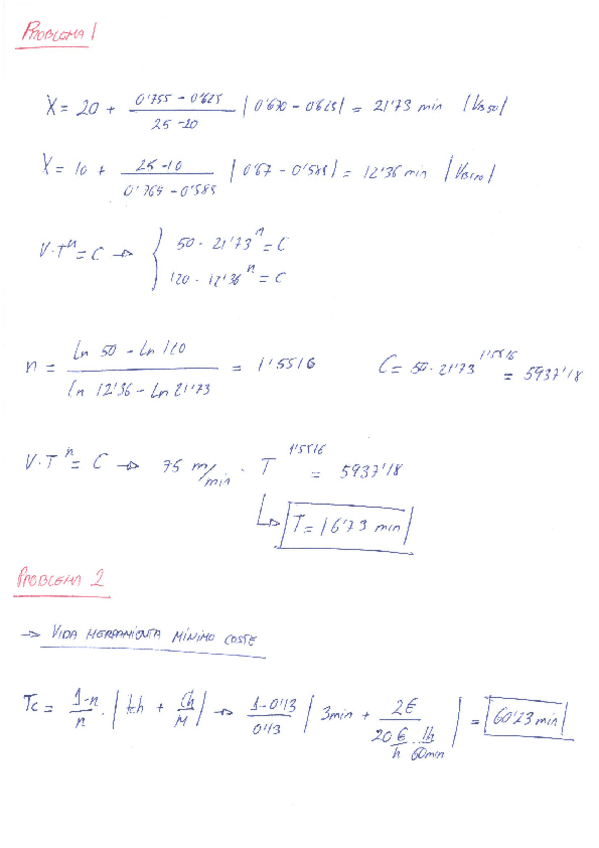 PROBLEMA 1
X = 20 + (0'755 - 0'625)/(25 - 20) | 0'670 - 0'625 | = 21'73 min | VB50 |
X = 10 + (25 - 10)/(0'765 - 0'585) | 0'67 - 0'585 | = 12'36 min | VB120 |
V·T^n = C → { 50 · 21'73^n = C
120 · 12'36^n = C
n = (ln 50 - ln 120)/(ln 12'36 - ln 21'73) = 1'5516 C = 50 · 21'73^1'5516 = 5937'18
V·T^n = C → 75 m/min · T^1'5516 = 5937'18
T = 16'73 min
PROBLEMA 2
→ VIDA HERRAMIENTA MÍNIMO COSTE
Tc = (1-n)/n · | tch + Ch/M | → (1-0'13)/0'13 | 3min + 2€/(20 €/h · 1h/60min) | = 60'23 min